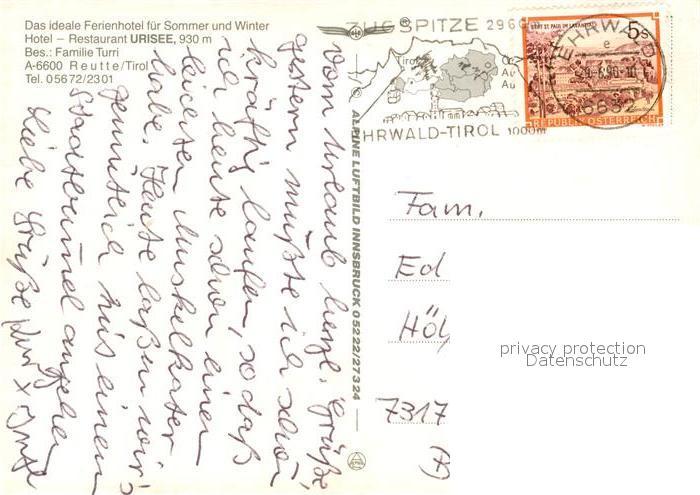 Das ideale Ferienhotel für Sommer und Winter
Hotel – Restaurant URISEE, 930 m
Bes.: Familie Turri
A-6600 Reutte/Tirol
Tel. 05672/2301
Vom Urlaub herzl. Grüße,
gestern mußte ich schon
kräftig laufen, so daß
ich heute schon einen
leichten Muskelkater
habe. Heute laßen wir's
gemütlich bis einen
Stadtbummel angehen
Liebe Grüße
ALPINE LUFTBILD INNSBRUCK 0 52 22/2 73 24
ZUGSPITZE 2960
Tirol
EHRWALD-TIROL 1000m
STIFT ST. PAUL IM LAVANTTAL
5s
REPUBLIK ÖSTERREICH
EHRWALD
6632
Fam.
Ed
Höl
7317
privacy protection
Datenschutz